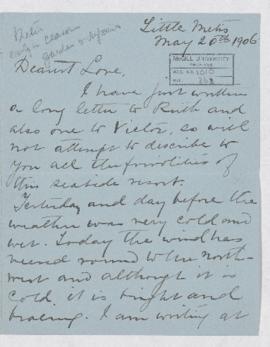 Little Metis
May 26th 1906
McGILL UNIVERSITY
ACC. NO. 1010
REF. 262
Dearest Love,
I have just written
a long letter to Ruth and
also one to Victor, so will
not attempt to describe to
you all the frivolities of
this seaside resort.
Yesterday and day before the
weather was very cold and
wet. Today the wind has
veered round to the north-
west and although it is
cold, it is bright and
bracing. I am writing at